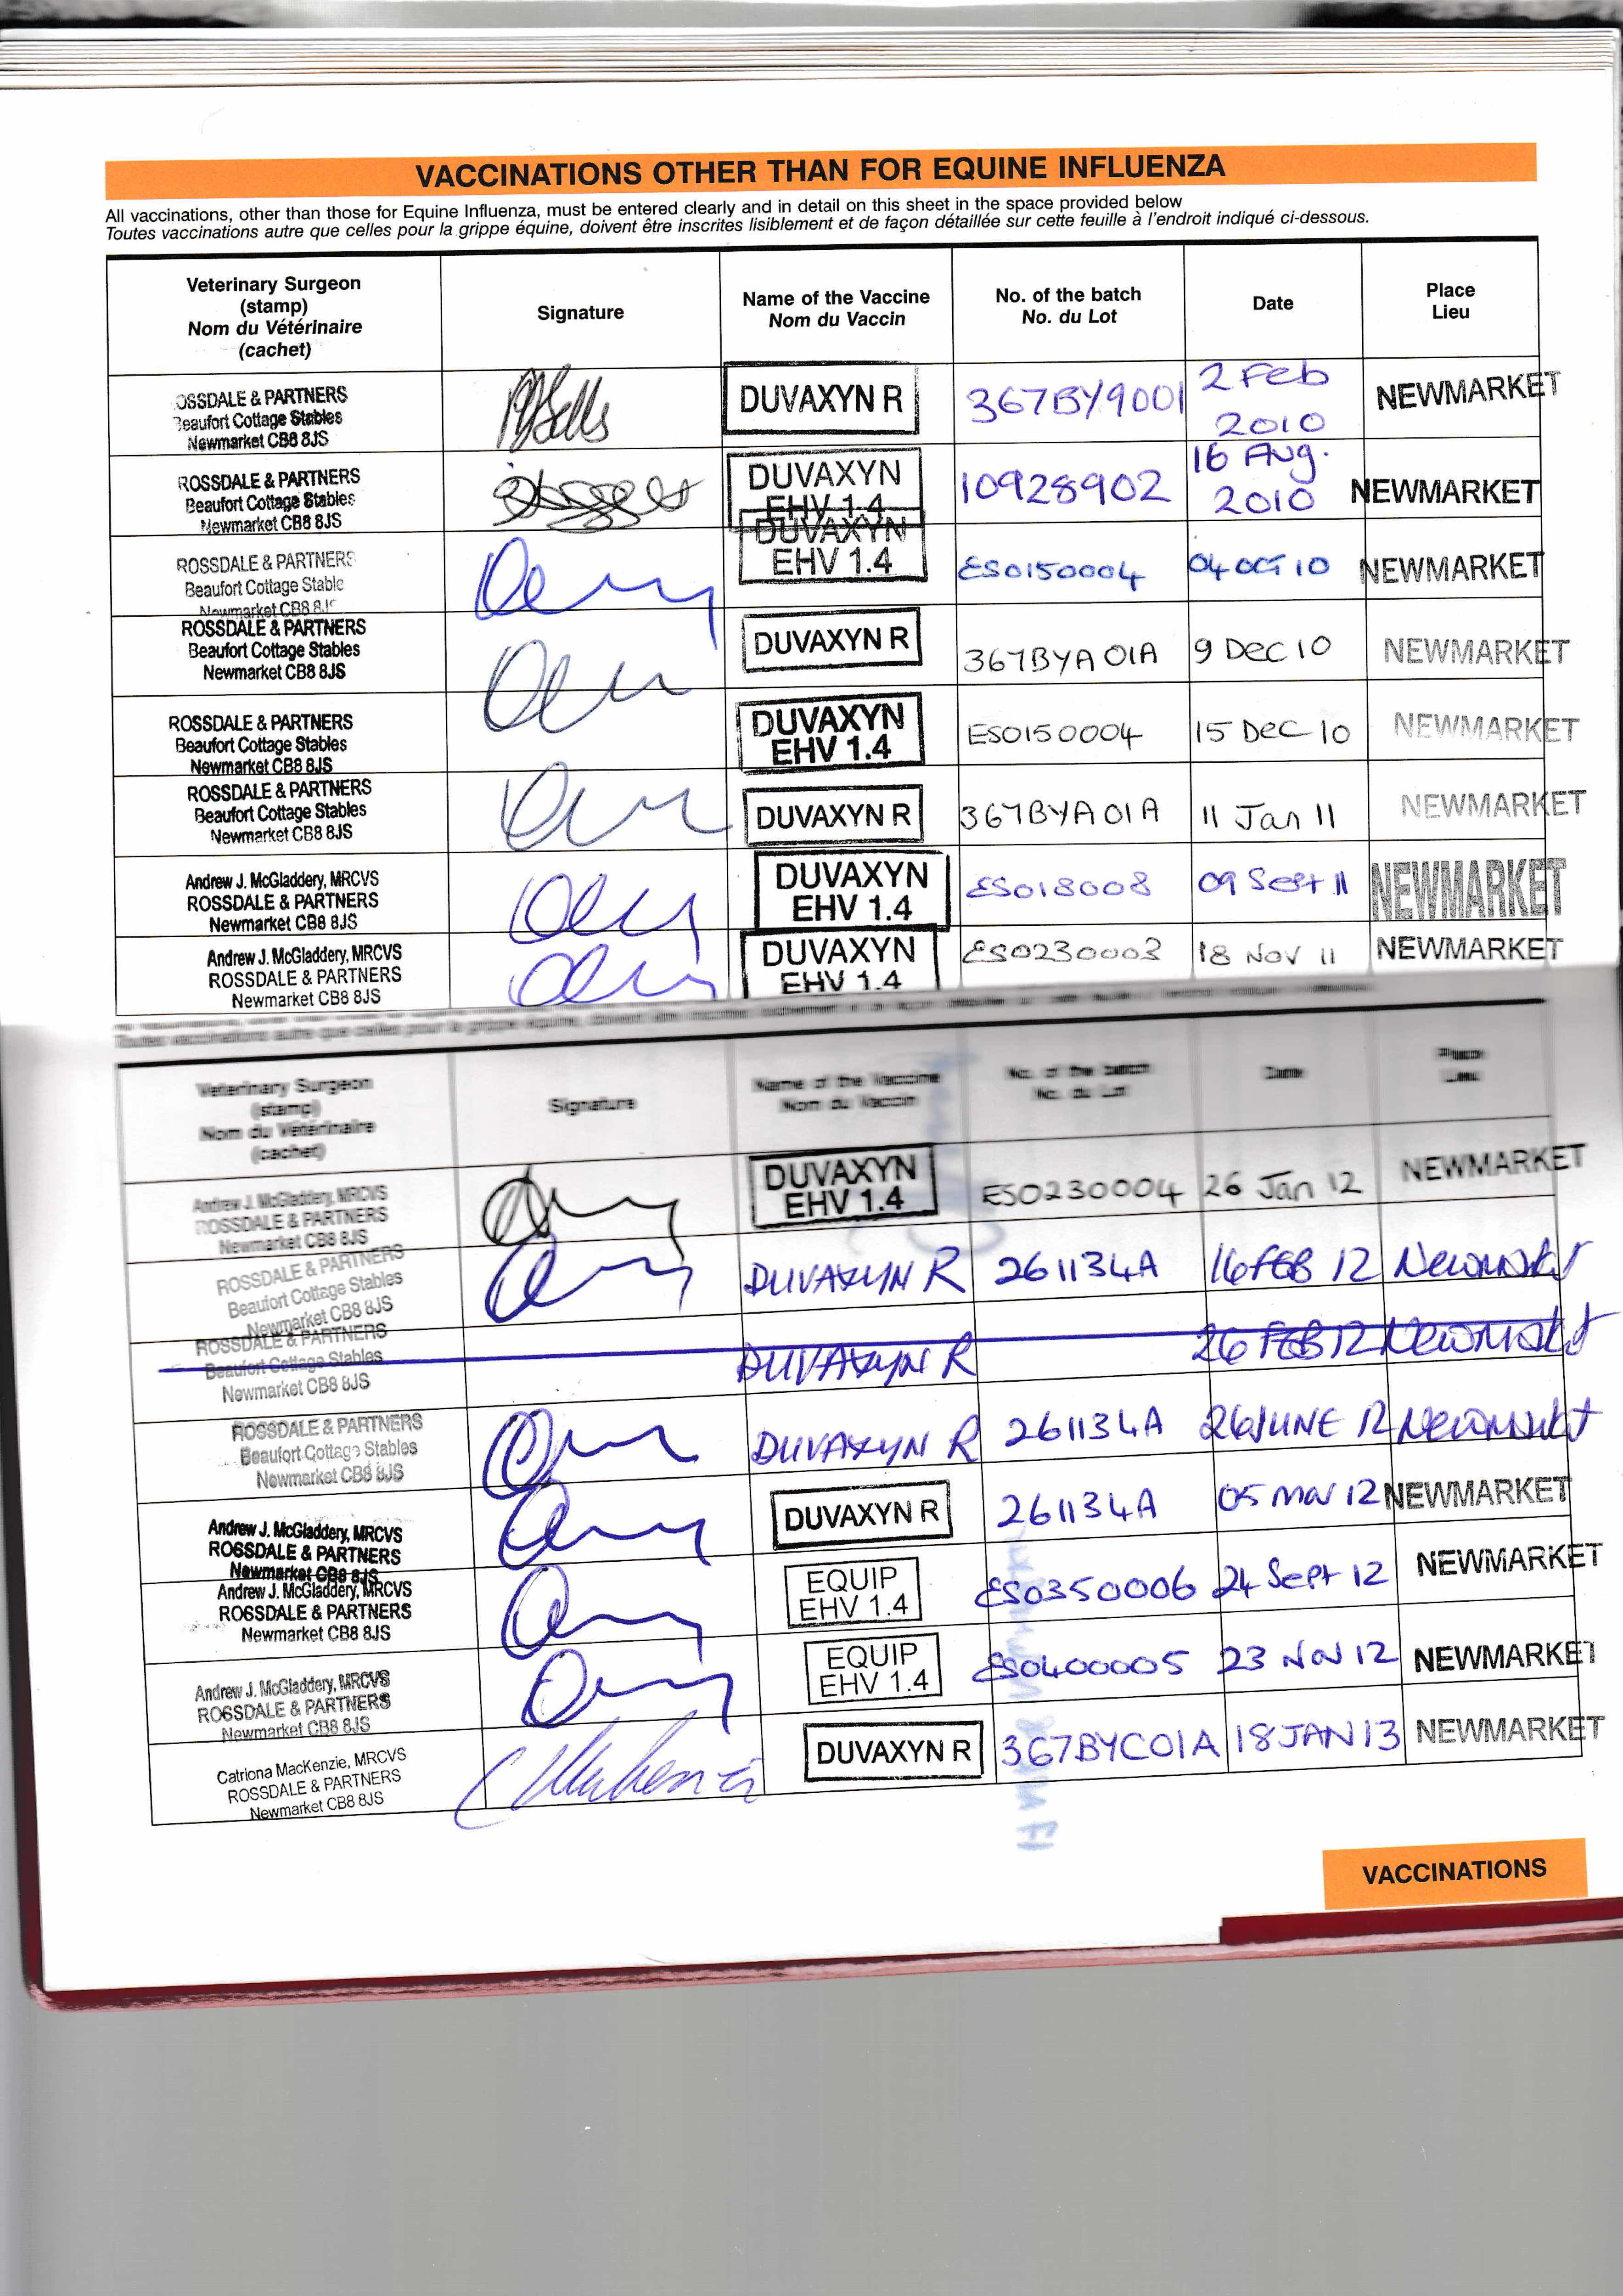 VACCINATIONS OTHER THAN FOR EQUINE INFLUENZA
All vaccinations, other than those for Equine Influenza, must be entered clearly and in detail on this sheet in the space provided below
Toutes vaccinations autre que celles pour la grippe équine, doivent être inscrites lisiblement et de façon détaillée sur cette feuille à l'endroit indiqué ci-dessous.
Veterinary Surgeon
(stamp)
Nom du Vétérinaire
(cachet)
Signature
Name of the Vaccine
Nom du Vaccin
No. of the batch
No. du Lot
Date
Place
Lieu
OSSDALE & PARTNERS
Beaufort Cottage Stables
Newmarket CB8 8JS
DUVAXYN R
367BY9001
2 Feb
2010
NEWMARKET
ROSSDALE & PARTNERS
Beaufort Cottage Stables
Newmarket CB8 8JS
DUVAXYN
EHV 1.4
10928902
16 Aug.
2010
NEWMARKET
ROSSDALE & PARTNERS
Beaufort Cottage Stable
Newmarket CB8 8JS
DUVAXYN
EHV 1.4
ES0150004
04 OCT 10
NEWMARKET
ROSSDALE & PARTNERS
Beaufort Cottage Stables
Newmarket CB8 8JS
DUVAXYN R
367BYA01A
9 Dec 10
NEWMARKET
ROSSDALE & PARTNERS
Beaufort Cottage Stables
Newmarket CB8 8JS
DUVAXYN
EHV 1.4
ES0150004
15 Dec 10
NEWMARKET
ROSSDALE & PARTNERS
Beaufort Cottage Stables
Newmarket CB8 8JS
DUVAXYN R
367BYA01A
11 Jan 11
NEWMARKET
Andrew J. McGladdery, MRCVS
ROSSDALE & PARTNERS
Newmarket CB8 8JS
DUVAXYN
EHV 1.4
ES018008
09 Sept 11
NEWMARKET
Andrew J. McGladdery, MRCVS
ROSSDALE & PARTNERS
Newmarket CB8 8JS
DUVAXYN
EHV 1.4
ES0230003
18 Nov 11
NEWMARKET
Toutes vaccinations autre que celles pour la grippe équine, doivent être inscrites lisiblement et de façon
Veterinary Surgeon
(stamp)
Nom du Vétérinaire
(cachet)
Signature
Name of the Vaccine
Nom du Vaccin
No. of the batch
No. du Lot
Date
Place
Lieu
Andrew J. McGladdery, MRCVS
ROSSDALE & PARTNERS
Newmarket CB8 8JS
DUVAXYN
EHV 1.4
ES0230004
26 Jan 12
NEWMARKET
ROSSDALE & PARTNERS
Beaufort Cottage Stables
Newmarket CB8 8JS
DUVAXYN R
261134A
16 FEB 12
Newmarket
ROSSDALE & PARTNERS
Beaufort Cottage Stables
Newmarket CB8 8JS
DUVAXYN R
26 FEB 12
Newmarket
ROSSDALE & PARTNERS
Beaufort Cottage Stables
Newmarket CB8 8JS
DUVAXYN R
261134A
26 JUNE 12
Newmarket
Andrew J. McGladdery, MRCVS
ROSSDALE & PARTNERS
Newmarket CB8 8JS
DUVAXYN R
261134A
05 Mar 12
NEWMARKET
Andrew J. McGladdery, MRCVS
ROSSDALE & PARTNERS
Newmarket CB8 8JS
EQUIP
EHV 1.4
ES0350006
24 Sept 12
NEWMARKET
Andrew J. McGladdery, MRCVS
ROSSDALE & PARTNERS
Newmarket CB8 8JS
EQUIP
EHV 1.4
ES0400005
23 Nov 12
NEWMARKET
Catriona MacKenzie, MRCVS
ROSSDALE & PARTNERS
Newmarket CB8 8JS
DUVAXYN R
367BYC01A
18 JAN 13
NEWMARKET
VACCINATIONS